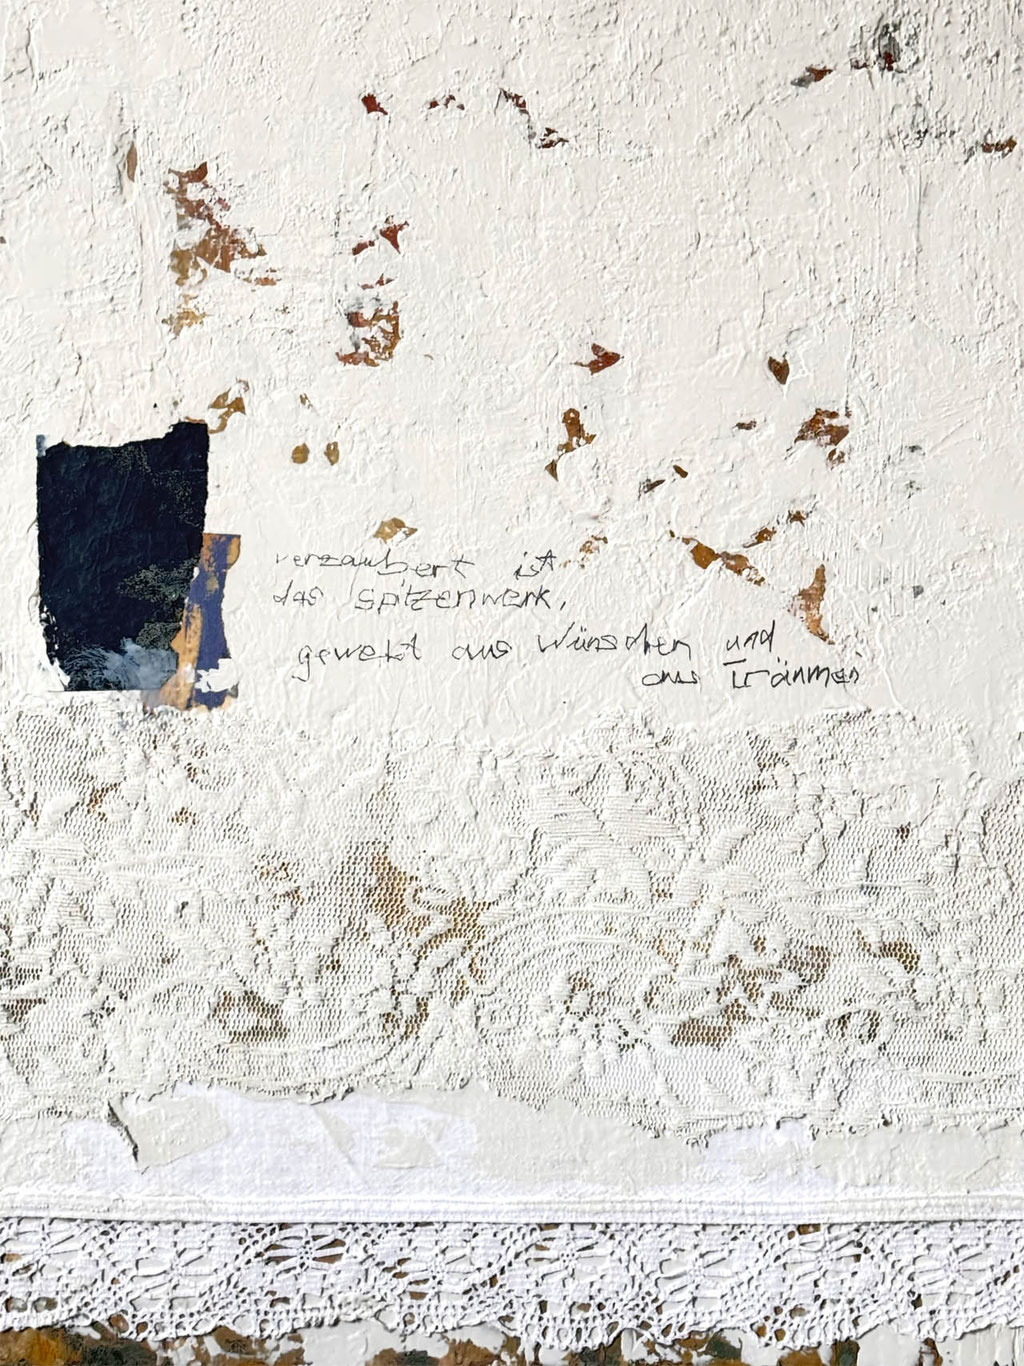 verzaubert ist
das Spitzenwerk,
gewebt aus Wünschen und
aus Träumen